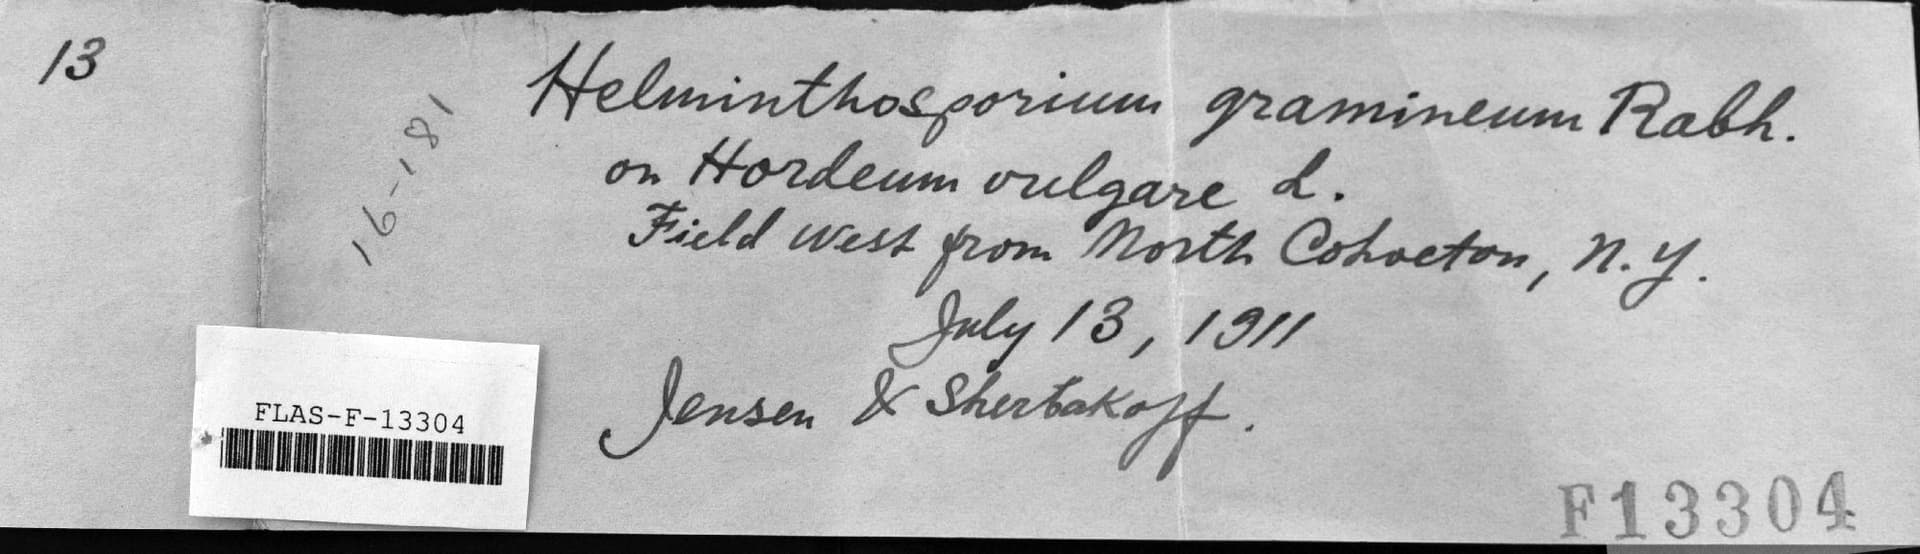 13
16-181
Helminthosporium gramineum Rabh.
on Hordeum vulgare L.
Field west from North Cohocton, N.Y.
July 13, 1911
Jensen & Sherbakoff.
FLAS-F-13304
F13304